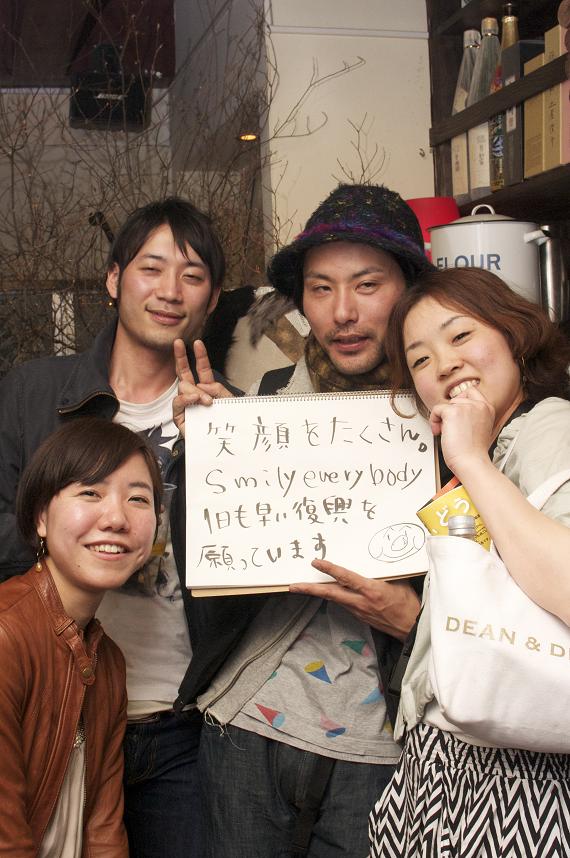 FLOUR
笑顔をたくさん。
smily everybody
1日も早い復興を
願っています
どう
DEAN & D